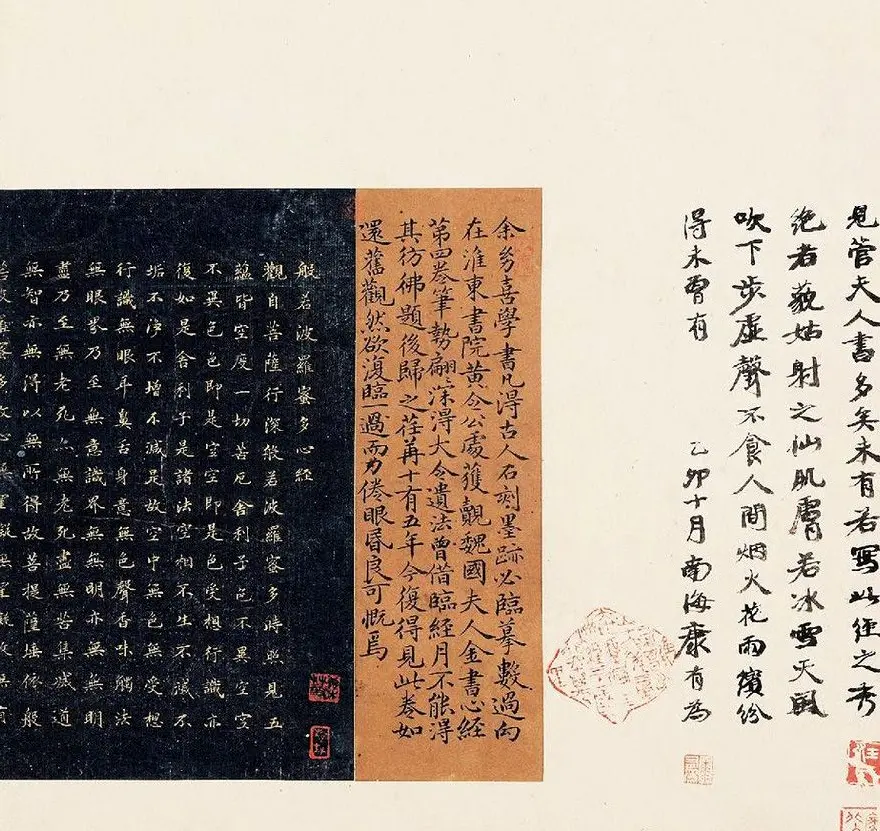 見管夫人書多矣未有若寫此經之秀
絶者藐姑射之仙肌膚若冰雪天風
吹下步虛聲不食人間烟火花雨繽紛
得未曾有
乙卯十月南海康有為
余幼喜學書凡得古人石刻墨跡必臨摹數過向
在淮東書院黃令公處獲覩魏國夫人金書心經
第四卷筆勢翩〻深得大令遺法曾借臨經月不能得
其彷彿題後歸之荏苒十有五年今復得見此卷如
還舊觀然欲復臨一過而力倦眼昏良可慨焉
般若波羅蜜多心經
觀自菩薩行深般若波羅蜜多時照見五
蘊皆空度一切苦厄舍利子色不異空空
不異色色即是空空即是色受想行識亦
復如是舍利子是諸法空相不生不滅不
垢不淨不增不減是故空中無色無受想
行識無眼耳鼻舌身意無色聲香味觸法
無眼界乃至無意識界無無明亦無無明
盡乃至無老死亦無老死盡無苦集滅道
無智亦無得以無所得故菩提薩埵依般
若波羅蜜多故心無罣礙無罣礙故無有